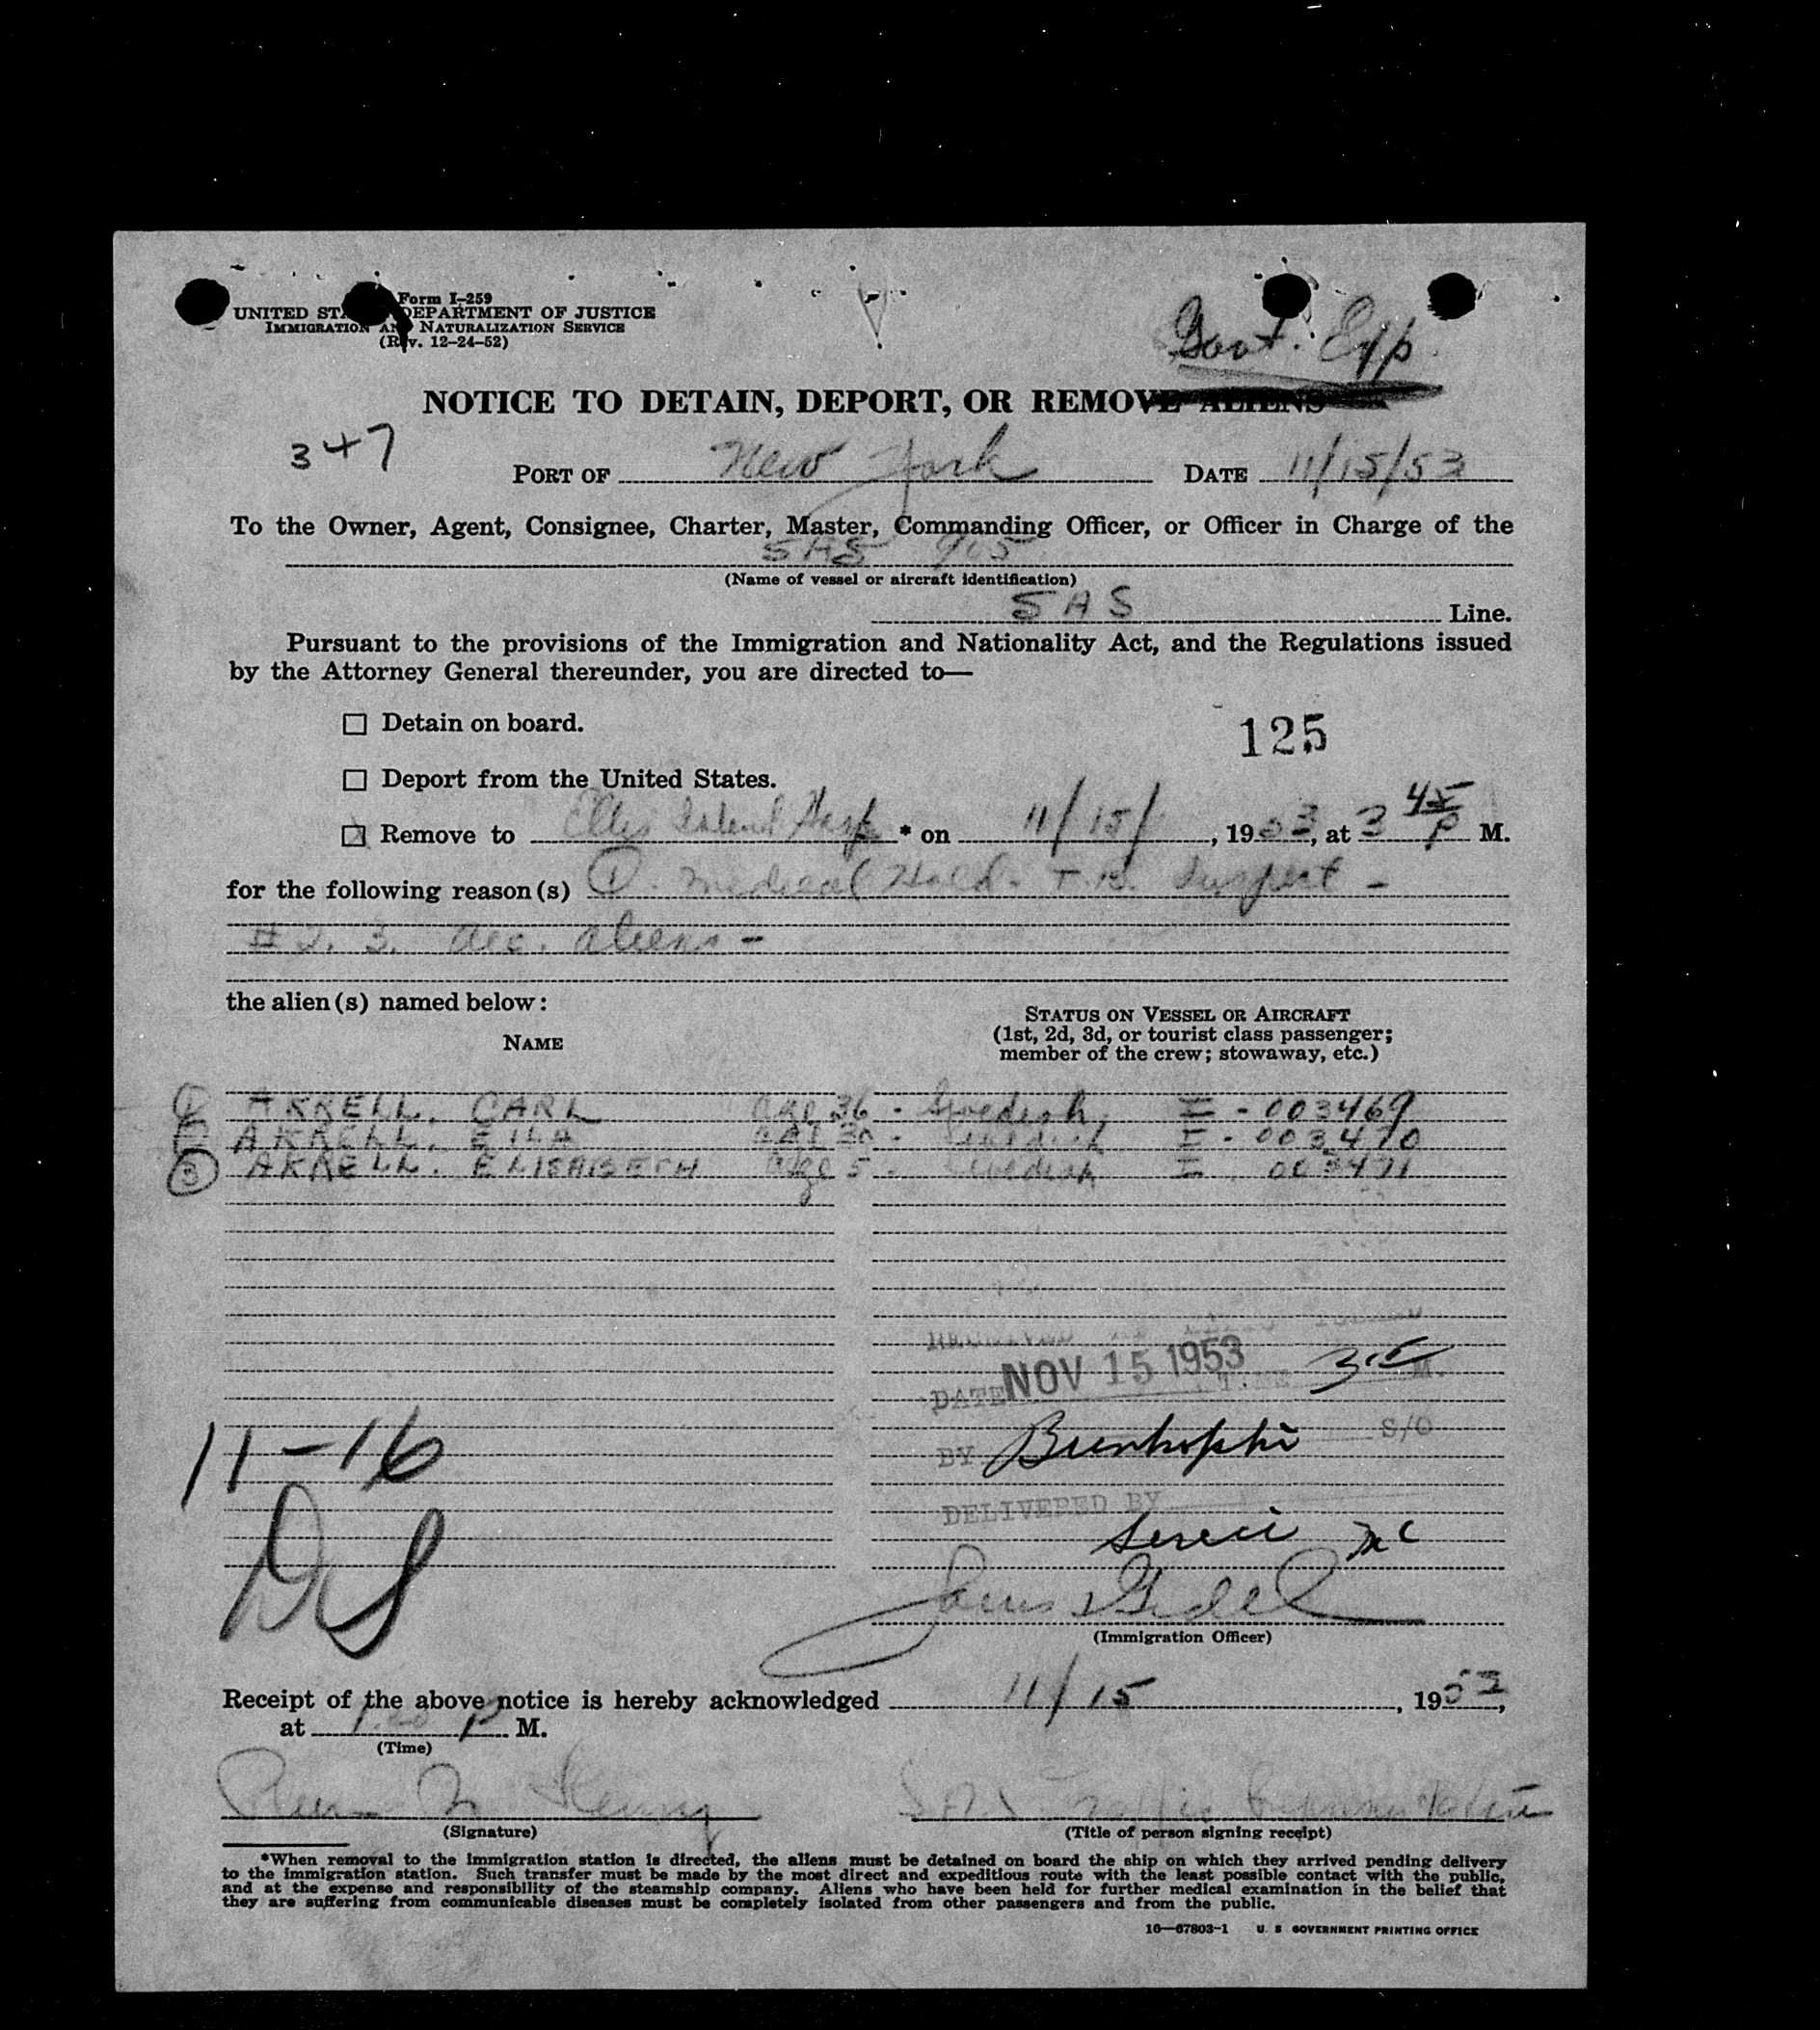 Form I-259
UNITED ST DEPARTMENT OF JUSTICE
IMMIGRATION AND NATURALIZATION SERVICE
(Rev. 12-24-52)
Govt. Exp.
NOTICE TO DETAIN, DEPORT, OR REMOVE ALIENS
347
PORT OF New York DATE 11/15/53
To the Owner, Agent, Consignee, Charter, Master, Commanding Officer, or Officer in Charge of the
SAS 905
(Name of vessel or aircraft identification)
SAS Line.
Pursuant to the provisions of the Immigration and Nationality Act, and the Regulations issued
by the Attorney General thereunder, you are directed to—
☐ Detain on board.
125
☐ Deport from the United States.
☒ Remove to Ellis Island Hosp * on 11/15/, 1953, at 3 45 P M.
for the following reason(s) ① Medical Hold - T.B. Suspect -
#2. 3. acc. aliens -
the alien(s) named below:
NAME
STATUS ON VESSEL OR AIRCRAFT
(1st, 2d, 3d, or tourist class passenger;
member of the crew; stowaway, etc.)
① AKRELL, CARL age 36 - Swedish, I - 003469
AKRELL, EILA age 30 - Swedish I - 003470
③ AKRELL. ELISABETH age 5 - Swedish I 003471
RECEIVED
DATE NOV 15 1953 M.
BY S/O
DELIVERED BY
11-16
(Immigration Officer)
Receipt of the above notice is hereby acknowledged 11/15, 1953,
at P M.
(Time)
SAS Traffic Representative
(Signature)
(Title of person signing receipt)
*When removal to the immigration station is directed, the aliens must be detained on board the ship on which they arrived pending delivery
to the immigration station. Such transfer must be made by the most direct and expeditious route with the least possible contact with the public,
and at the expense and responsibility of the steamship company. Aliens who have been held for further medical examination in the belief that
they are suffering from communicable diseases must be completely isolated from other passengers and from the public.
16—67803-1 U. S GOVERNMENT PRINTING OFFICE